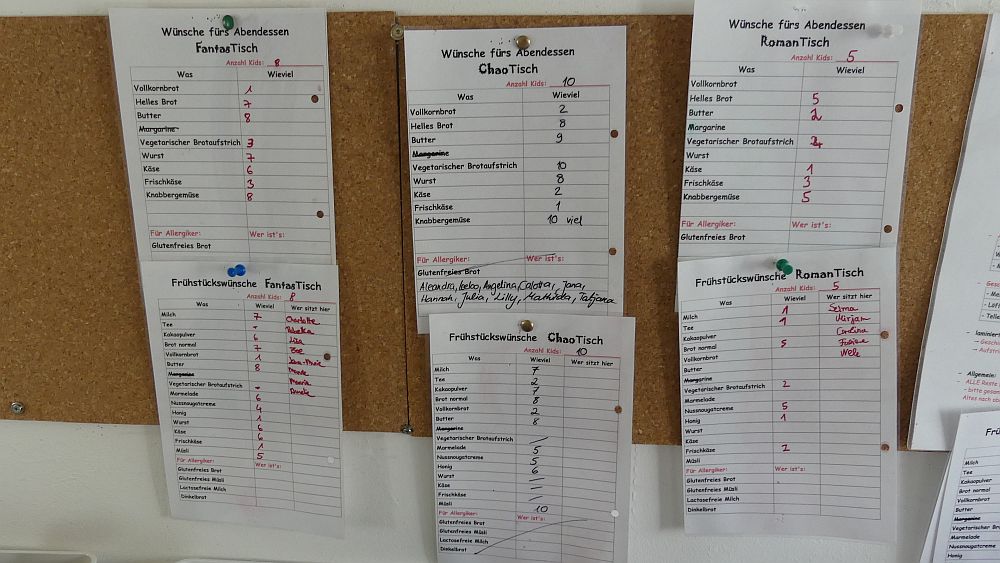 Wünsche fürs Abendessen
FantasTisch
Anzahl Kids: 8
Was Wieviel
Vollkornbrot 1
Helles Brot 7
Butter 8
Margarine
Vegetarischer Brotaufstrich 3
Wurst 7
Käse 6
Frischkäse 3
Knabbergemüse 8
Für Allergiker: Wer ist's:
Glutenfreies Brot
Wünsche fürs Abendessen
ChaoTisch
Anzahl Kids: 10
Was Wieviel
Vollkornbrot 2
Helles Brot 8
Butter 9
Margarine
Vegetarischer Brotaufstrich 10
Wurst 8
Käse 2
Frischkäse 1
Knabbergemüse 10 viel
Für Allergiker: Wer ist's:
Glutenfreies Brot
Angelina, Jana,
Hannah, Julia, Lilly, Mathilda, Tatjana
Wünsche fürs Abendessen
RomanTisch
Anzahl Kids: 5
Was Wieviel
Vollkornbrot
Helles Brot 5
Butter 2
Margarine
Vegetarischer Brotaufstrich
Wurst
Käse 1
Frischkäse 3
Knabbergemüse 5
Für Allergiker: Wer ist's:
Glutenfreies Brot
Frühstückswünsche FantasTisch
Anzahl Kids: 8
Was Wieviel Wer sitzt hier
Milch 7 Charlotte
Tee -
Kakaopulver 6 Lisa
Brot normal 7 Zoe
Vollkornbrot 1
Butter 8
Margarine
Vegetarischer Brotaufstrich -
Marmelade 6
Nussnougatcreme 4
Honig 1
Wurst 6
Käse 6
Frischkäse 1
Müsli 5
Für Allergiker: Wer ist's:
Glutenfreies Brot
Glutenfreies Müsli
Lactosefreie Milch
Dinkelbrot
Frühstückswünsche ChaoTisch
Anzahl Kids: 10
Was Wieviel Wer sitzt hier
Milch 7
Tee 2
Kakaopulver 7
Brot normal 8
Vollkornbrot 2
Butter 8
Margarine
Vegetarischer Brotaufstrich
Marmelade 5
Nussnougatcreme 5
Honig 6
Wurst
Käse
Frischkäse
Müsli 10
Für Allergiker: Wer ist's:
Glutenfreies Brot
Glutenfreies Müsli
Lactosefreie Milch
Dinkelbrot
Frühstückswünsche RomanTisch
Anzahl Kids: 5
Was Wieviel Wer sitzt hier
Milch 1 Selma
Tee 1 Mirjam
Kakaopulver Carolina
Brot normal 5
Vollkornbrot
Butter
Margarine
Vegetarischer Brotaufstrich 2
Marmelade
Nussnougatcreme 5
Honig 1
Wurst
Käse
Frischkäse 2
Müsli
Für Allergiker: Wer ist's:
Glutenfreies Brot
Glutenfreies Müsli
Lactosefreie Milch
Dinkelbrot
Allgemein:
ALLE Reste
Milch
Tee
Kakaopulver
Brot normal
Vollkornbrot
Butter
Margarine
Vegetarischer
Marmelade
Honig